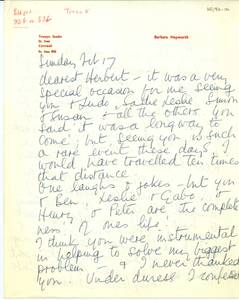 Trewyn Studio
St. Ives
Cornwall
Barbara Hepworth
Sunday Feb 17
dearest Herbert – it was a very
special occasion for me seeing
you & Ludo, Sadie Leslie, Simon
& Susan & all the others. You
said it was a long way to
come but seeing you is such
a rare event these days, I
would have travelled ten times
that distance.
One laughs & jokes – but you
& Ben, Leslie & Gabo,
Henry & Peter are the complete
ness of ones life.
I think you were instrumental
in helping to solve my biggest
problem & I never thanked
you. Under duress I confessed